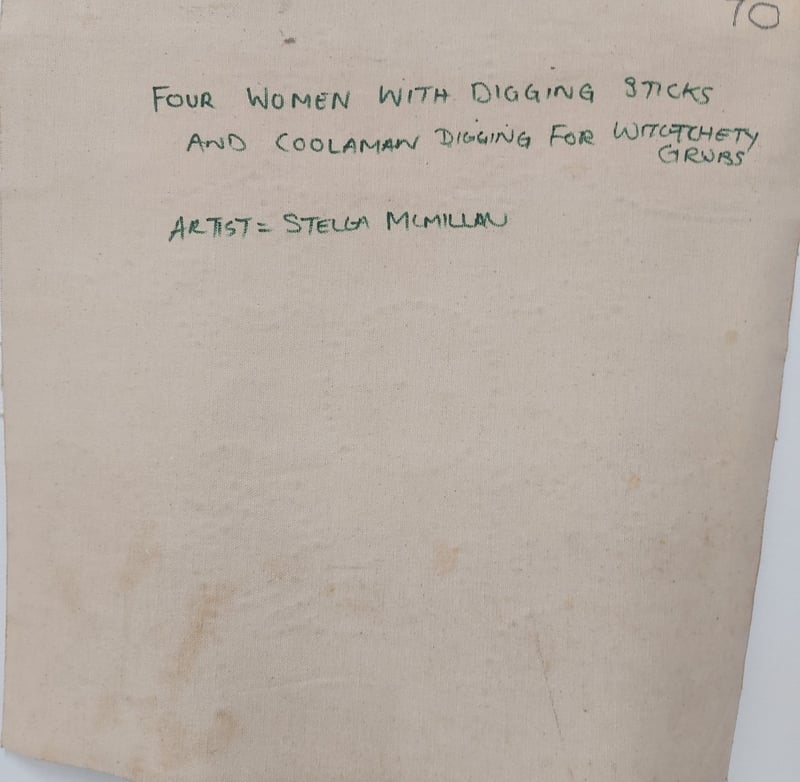 70
FOUR WOMEN WITH DIGGING STICKS
AND COOLAMAN DIGGING FOR WITCTCHETY
GRUBS
ARTIST = STELLA MCMILLAN